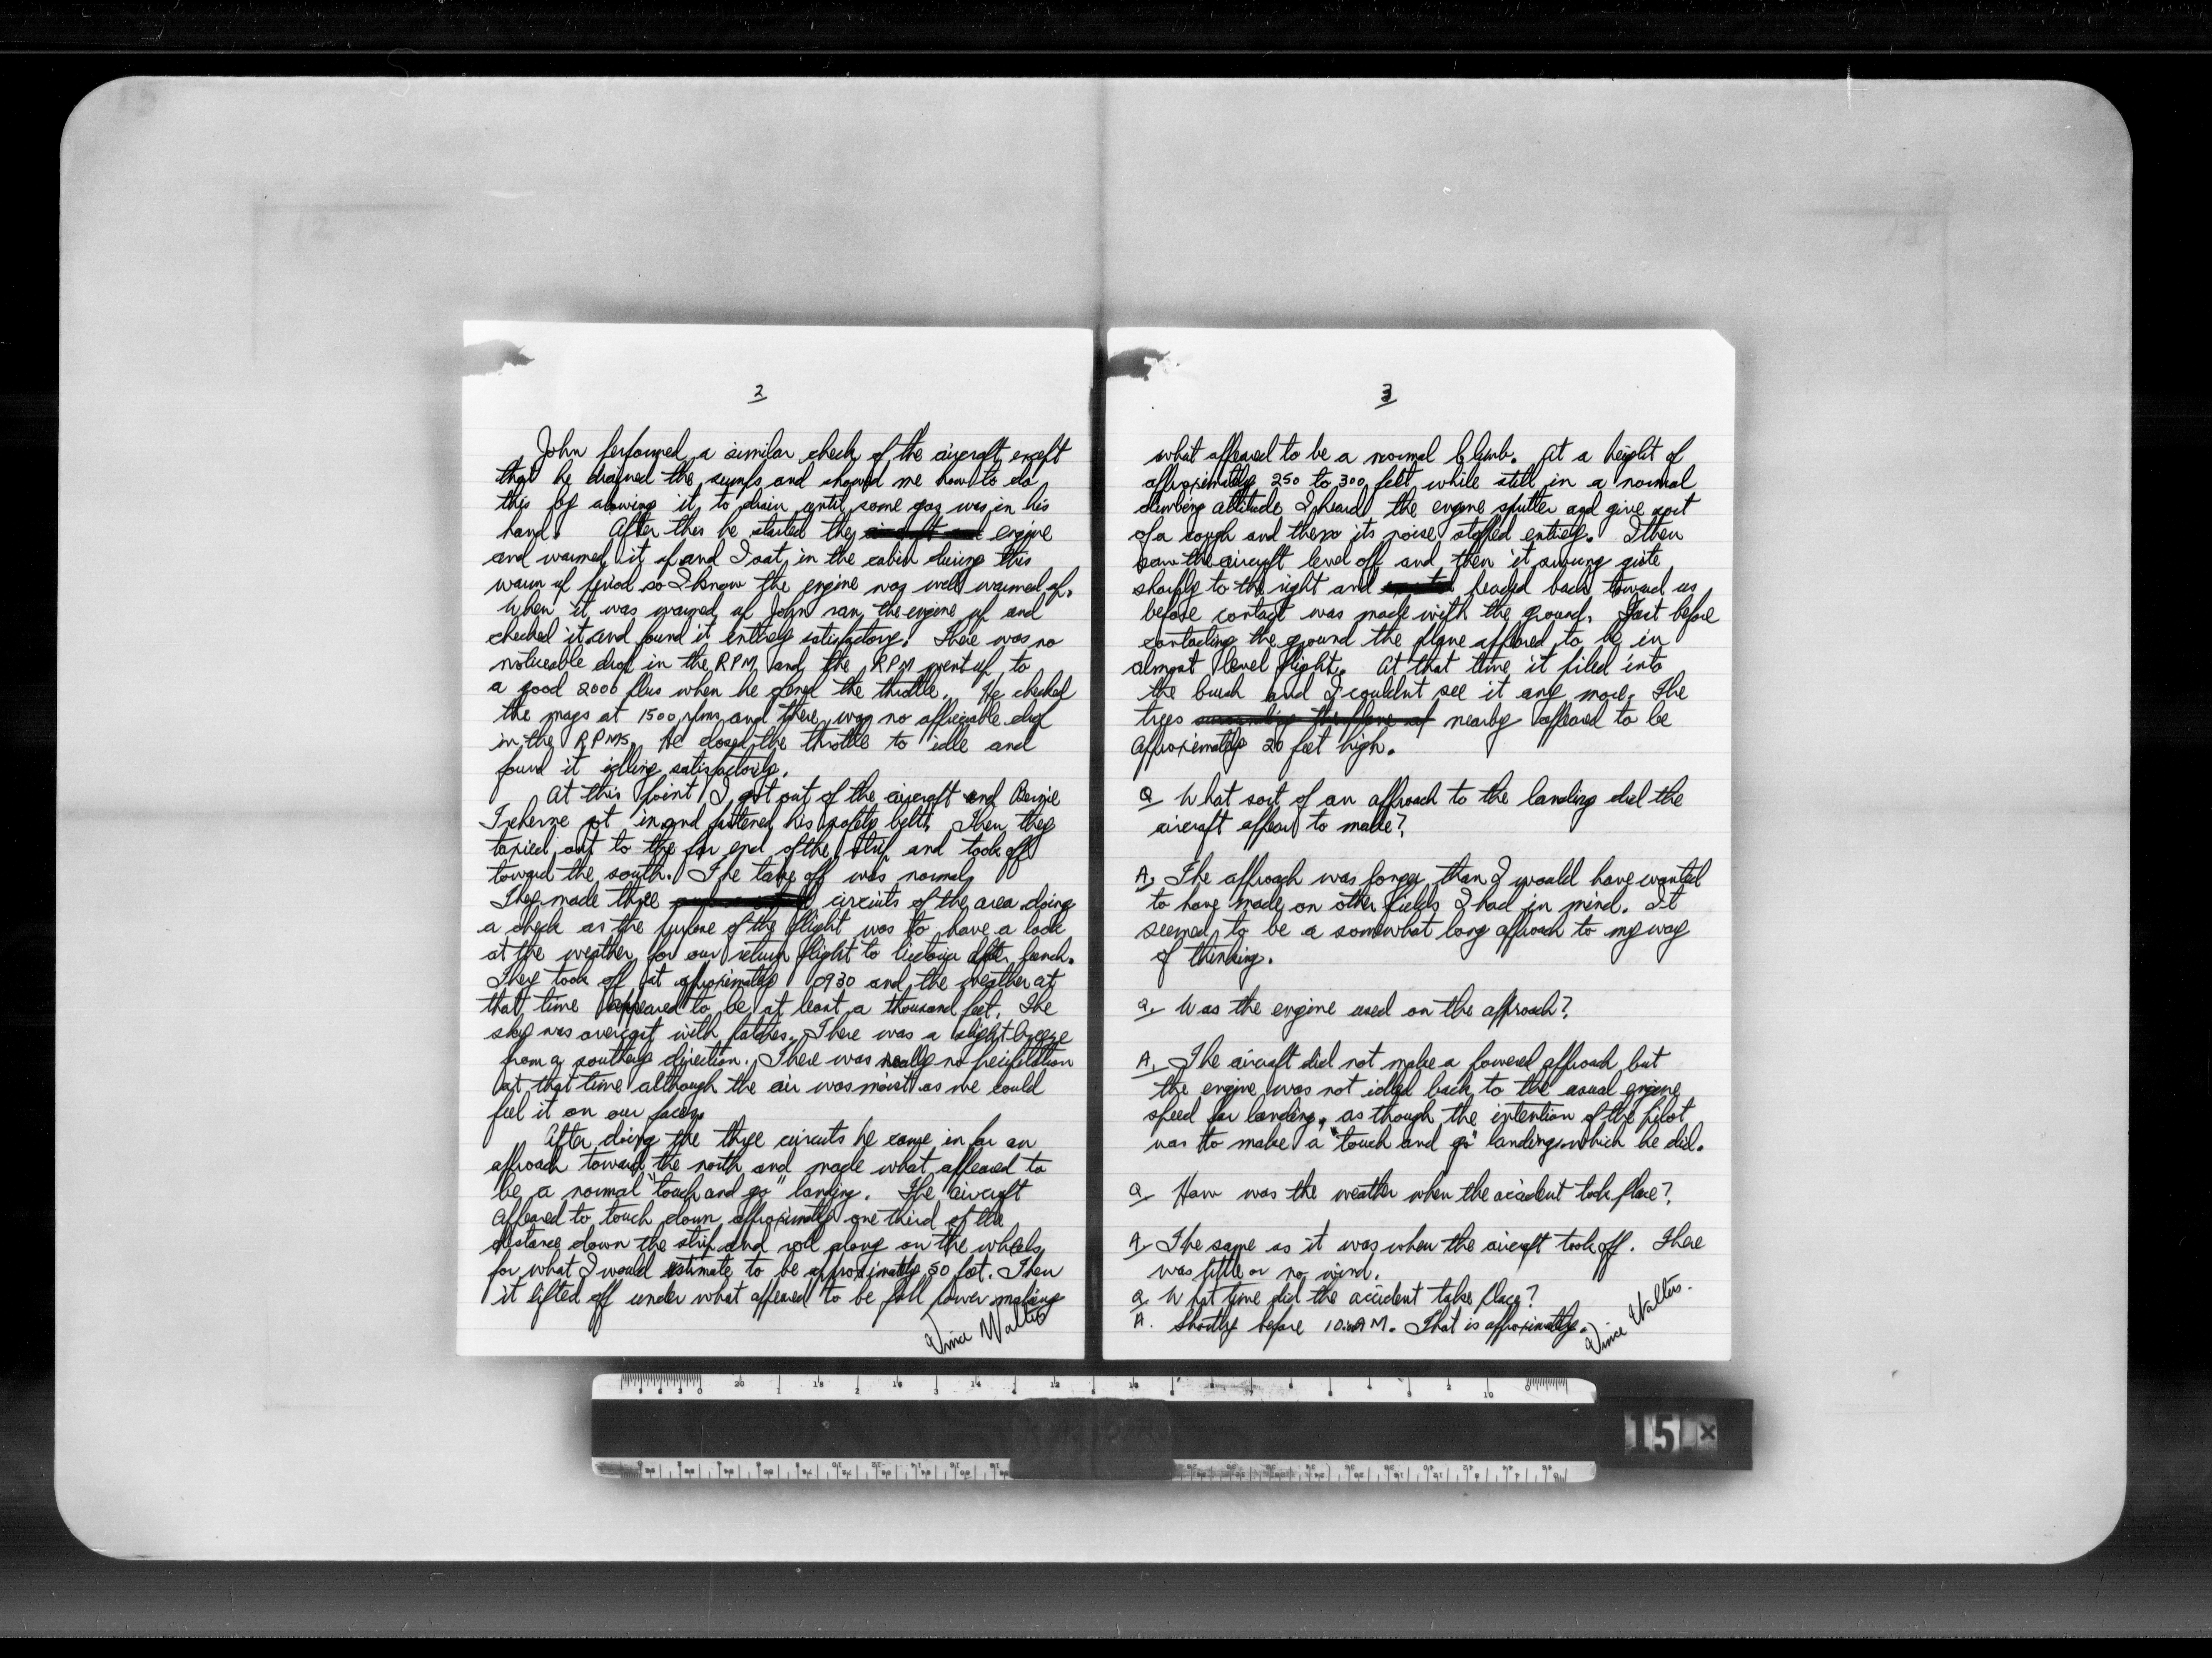 2
John performed a similar check of the aircraft except
that he drained the sumps and showed me how to do
this by alowing it to drain until some gas was in his
hand. After this he started the engine
and warmed it up and I sat in the cabin during this
warm up period so I know the engine was well warmed up.
When it was warmed up John ran the engine up and
checked it and found it entirely satisfactory. There was no
noticeable drop in the RPM and the RPM went up to
a good 2000 plus when he opened the throttle. He checked
the mags at 1500 rpms and there was no appreciable drop
in the RPMs. He closed the throttle to idle and
found it idling satisfactorily.
At this point I got out of the aircraft and Bernie
Treherne got in and fastened his safety belt. Then they
taxied out to the far end of the strip and took off
toward the south. The take off was normal.
They made three circuits of the area doing
a check as the purpose of the flight was to have a look
at the weather for our return flight to Victoria after lunch.
They took off at approximately 0930 and the weather at
that time appeared to be at least a thousand feet. The
sky was overcast with patches. There was a slight breeze
from a southerly direction. There was really no precipitation
at that time although the air was moist as we could
feel it on our faces.
After doing the three circuits he came in for an
approach toward the north and made what appeared to
be a normal "touch and go" landing. The aircraft
appeared to touch down approximately one third of the
distance down the strip and roll along on the wheels
for what I would estimate to be approximately 50 feet. Then
it lifted off under what appeared to be full power making
Vince Walters
3
what appeared to be a normal climb. At a height of
approximately 250 to 300 feet while still in a normal
climbing attitude I heard the engine sputter and give sort
of a cough and then its noise stopped entirely. I then
saw the aircraft level off and then it swung quite
sharply to the right and headed back toward us
before contact was made with the ground. Just before
contacting the ground the plane appeared to be in
almost level flight. At that time it piled into
the bush and I couldn't see it any more. The
trees nearby appeared to be
approximately 20 feet high.
Q What sort of an approach to the landing did the
aircraft appear to make?
A. The approach was longer than I would have wanted
to have made on other fields I had in mind. It
seemed to be a somewhat long approach to my way
of thinking.
Q. Was the engine used on the approach?
A. The aircraft did not make a powered approach but
the engine was not idled back to the usual engine
speed for landing, as though the intention of the pilot
was to make a "touch and go" landing which he did.
Q. How was the weather when the accident took place?
A. The same as it was when the aircraft took off. There
was little or no wind.
Q. What time did the accident take place?
A. Shortly before 10:00 AM. That is approximately.
Vince Walters.
15 x